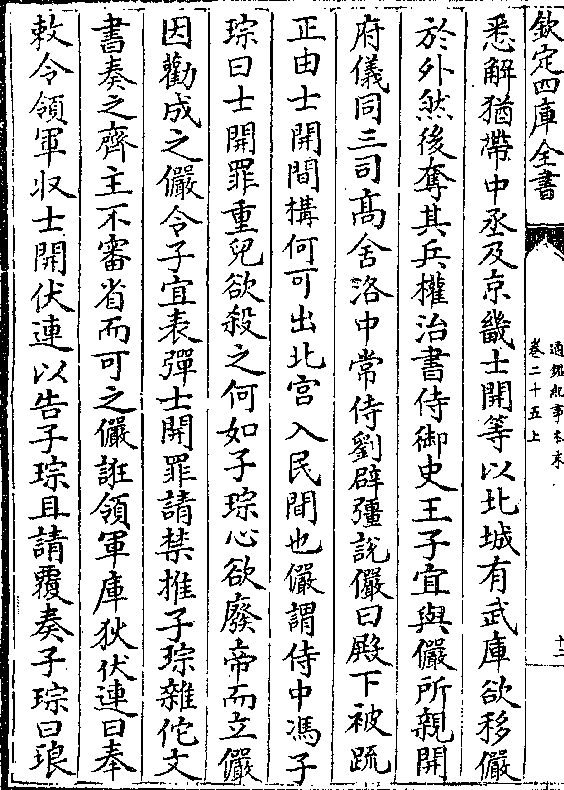 欽定四庫全書
通鑑紀事本末
卷二十五上
十三
悉解猶帶中丞及京畿士開等以北城有武庫欲移儼
於外然後奪其兵權治書侍御史王子宜與儼所親開
府儀同三司高舍洛中常侍劉辟彊說儼曰殿下被䟽
正由士開間構何可出北宮入民間也儼謂侍中馮子
琮曰士開罪重兒欲殺之何如子琮心欲廢帝而立儼
因勸成之儼令子宜表彈士開罪請禁推子琮雜佗文
書奏之齊主不審省而可之儼誑領軍庫狄伏連曰奉
敕令領軍収士開伏連以告子琮且請覆奏子琮曰琅